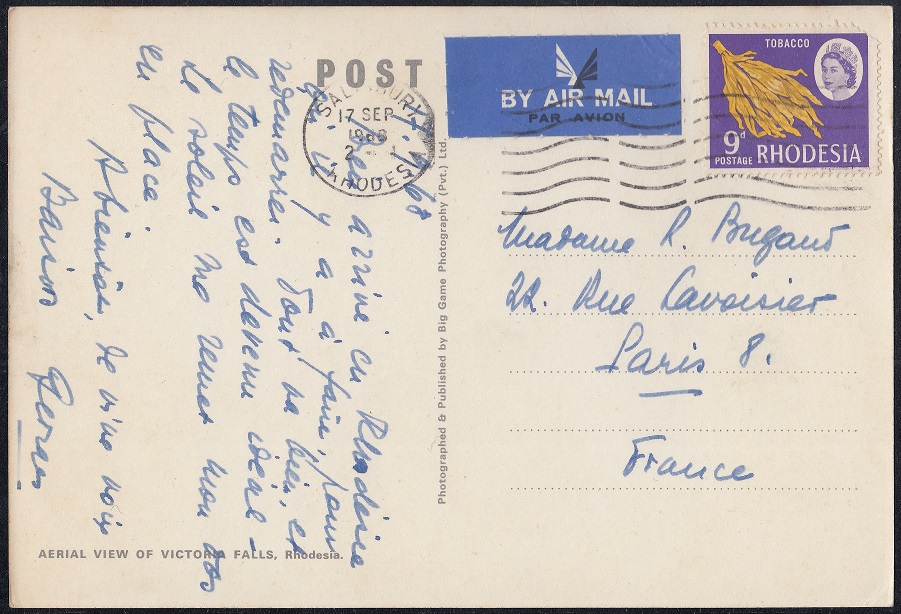 POST
SALISBURY
17 SEP
RHODESIA
BY AIR MAIL
PAR AVION
TOBACCO
9d
POSTAGE RHODESIA
68
arrivé en Rhodésie
y a à faire, pour
redémarrer. Tout va bien, et
le temps est devenu idéal -
Le soleil me remet mon dos
en place
A bientôt, de vous voir
Baisers
Photographed & Published by Big Game Photography (Pvt.) Ltd.
Madame R. Brigaud
22. Rue Lavoisier
Paris 8.
France
AERIAL VIEW OF VICTORIA FALLS, Rhodesia.